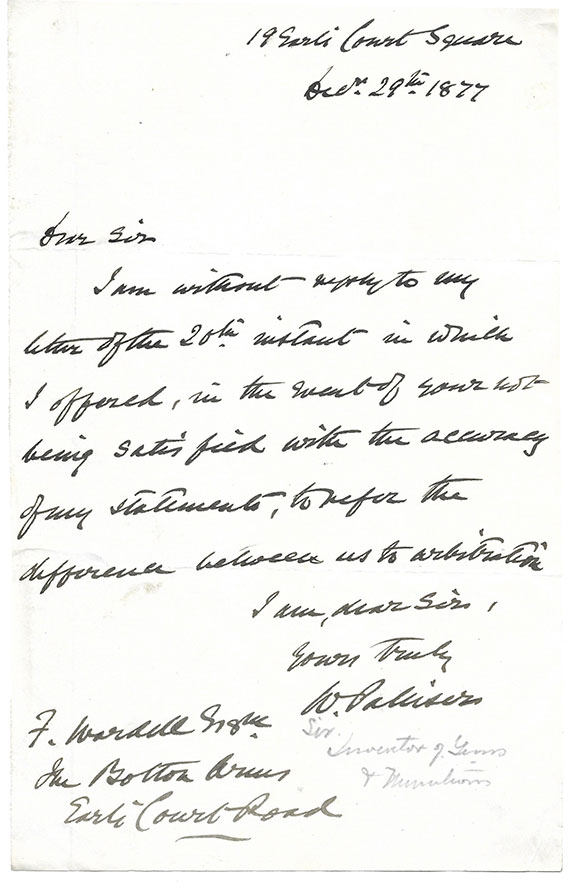 19 Earls Court Square
Decr. 29th 1877
Dear Sir
I am without reply to my
letter of the 20th instant in which
I offered, in the event of your not
being satisfied with the accuracy
of my statements, to refer the
difference between us to arbitration
I am, dear Sir,
Yours truly
W. Palliser
Sir.
Inventor of Guns
& Munitions
F. Wardell Esqre
The Bolton Arms
Earls Court Road